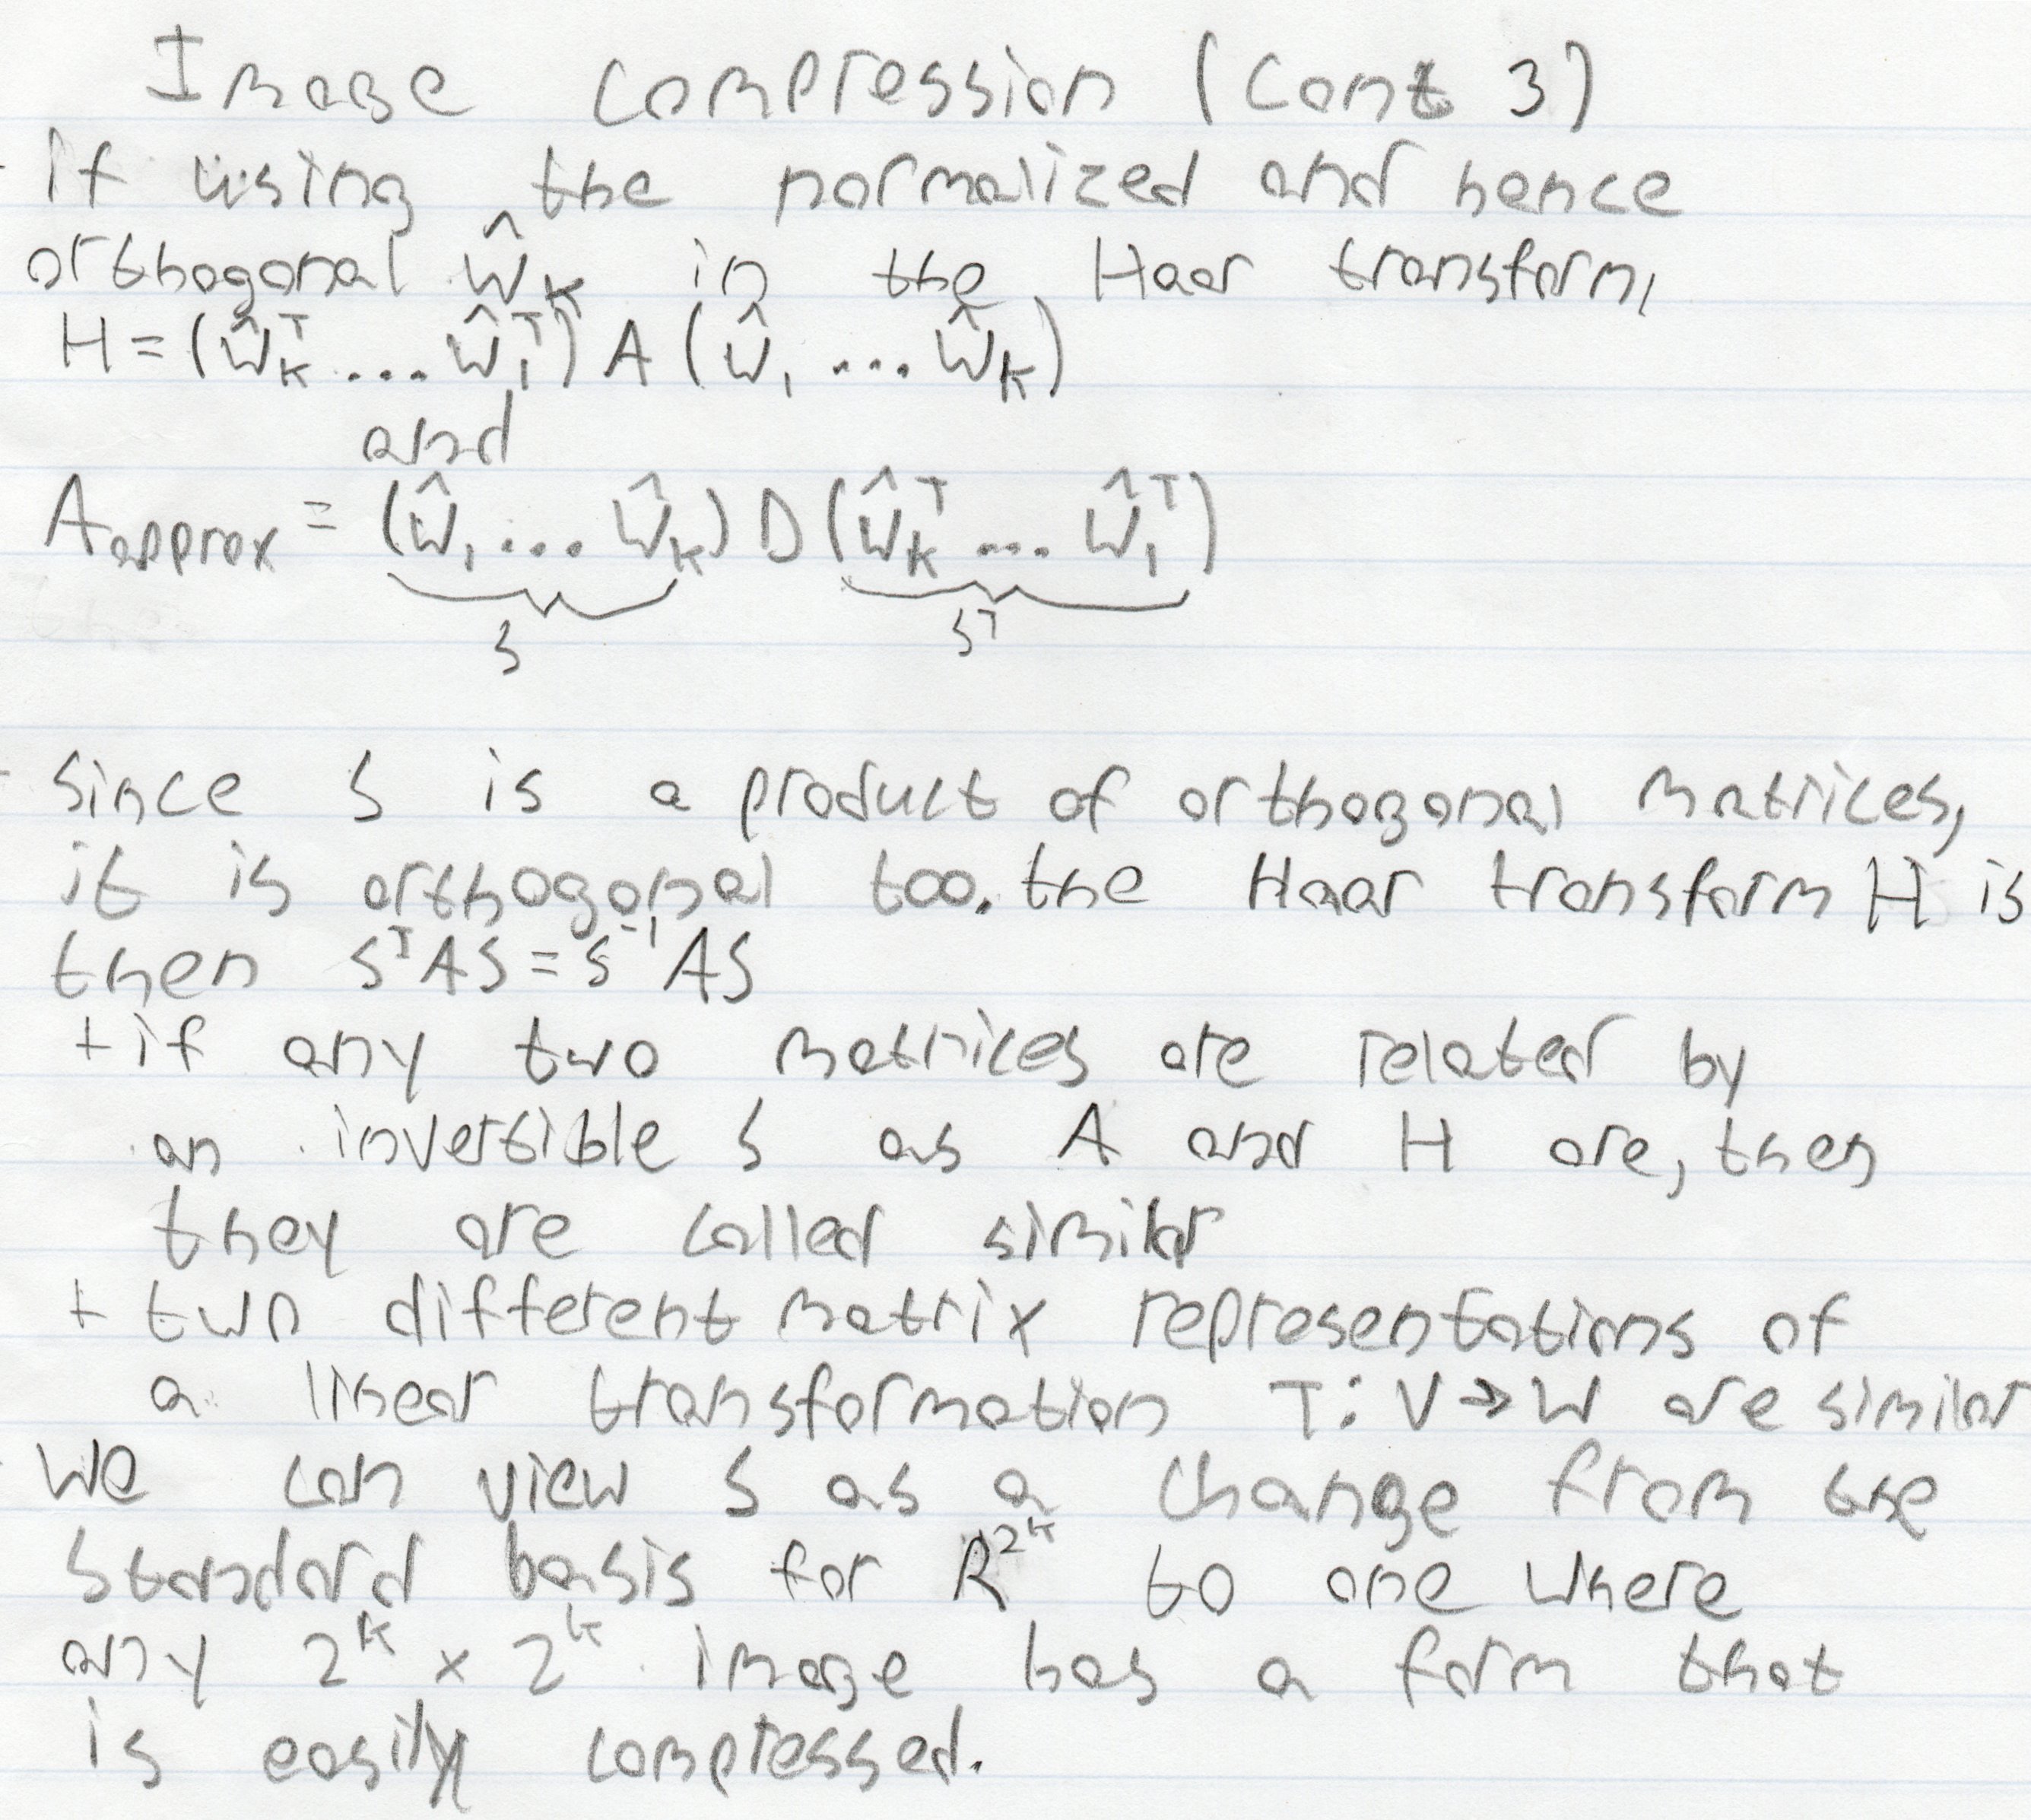 Image compression (cont 3)
- If using the normalized and hence
orthogonal Ŵ_K in the Haar transform,
H = (Ŵ_K^T .... Ŵ_1^T) A (Ŵ_1 .... Ŵ_K)
and
A_approx = (Ŵ_1 .... Ŵ_K) D (Ŵ_K^T .... Ŵ_1^T)
S S^T
- Since S is a product of orthogonal matrices,
it is orthogonal too. the Haar transform H is
then S^T AS = S^-1 AS
+ if any two matrices are related by
an invertible S as A and H are, then
they are called similar
+ two different matrix representations of
a linear transformation T: V → W are similar
- We can view S as a change from the
standard basis for R^2^K to one where
any 2^K x 2^K image has a form that
is easily compressed.